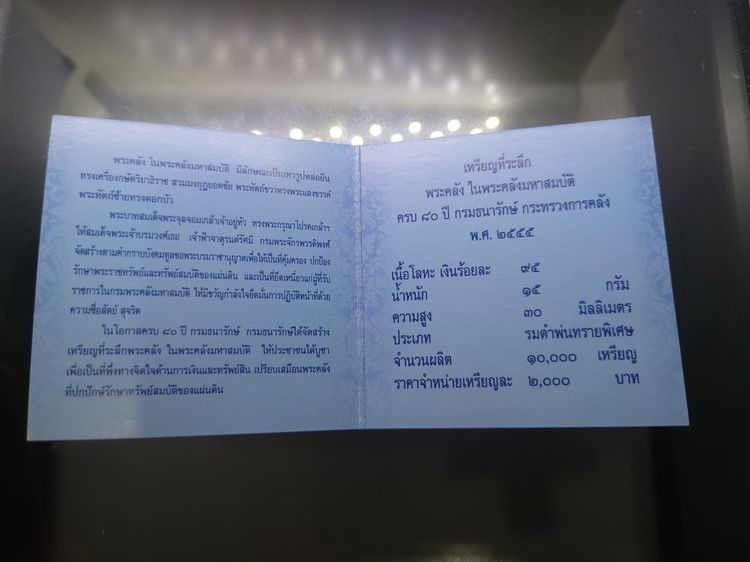 พระคลัง ในพระคลังมหาสมบัติ มีลักษณะเป็นเทวรูปหล่อยืน
ทรงเครื่องกษัตริยาธิราช สวมมงกุฎยอดชัย พระหัตถ์ขวาทรงพระแสงขรรค์
พระหัตถ์ซ้ายทรงดอกบัว
พระบาทสมเด็จพระจุลจอมเกล้าเจ้าอยู่หัว ทรงพระกรุณาโปรดเกล้าฯ
ให้สมเด็จพระเจ้าบรมวงศ์เธอ เจ้าฟ้าจาตุรนต์รัศมี กรมพระจักรพรรดิพงศ์
จัดสร้างตามคำกราบบังคมทูลขอพระบรมราชานุญาตเพื่อให้เป็นที่คุ้มครอง ปกป้อง
รักษาพระราชทรัพย์และทรัพย์สมบัติของแผ่นดิน และเป็นที่ยึดเหนี่ยวแก่ผู้ที่รับ
ราชการในกรมพระคลังมหาสมบัติ ให้มีขวัญกำลังใจยึดมั่นการปฏิบัติหน้าที่ด้วย
ความซื่อสัตย์ สุจริต
ในโอกาสครบ ๘๐ ปี กรมธนารักษ์ กรมธนารักษ์ได้จัดสร้าง
เหรียญที่ระลึกพระคลัง ในพระคลังมหาสมบัติ ให้ประชาชนได้บูชา
เพื่อเป็นที่พึ่งทางจิตใจด้านการเงินและทรัพย์สิน เปรียบเสมือนพระคลัง
ที่ปกปักษ์รักษาทรัพย์สมบัติของแผ่นดิน
เหรียญที่ระลึก
พระคลัง ในพระคลังมหาสมบัติ
ครบ ๘๐ ปี กรมธนารักษ์ กระทรวงการคลัง
พ.ศ. ๒๕๕๕
เนื้อโลหะ เงินร้อยละ ๙๕
น้ำหนัก ๑๕ กรัม
ความสูง ๓๐ มิลลิเมตร
ประเภท รมดำพ่นทรายพิเศษ
จำนวนผลิต ๑๐,๐๐๐ เหรียญ
ราคาจำหน่ายเหรียญละ ๒,๐๐๐ บาท